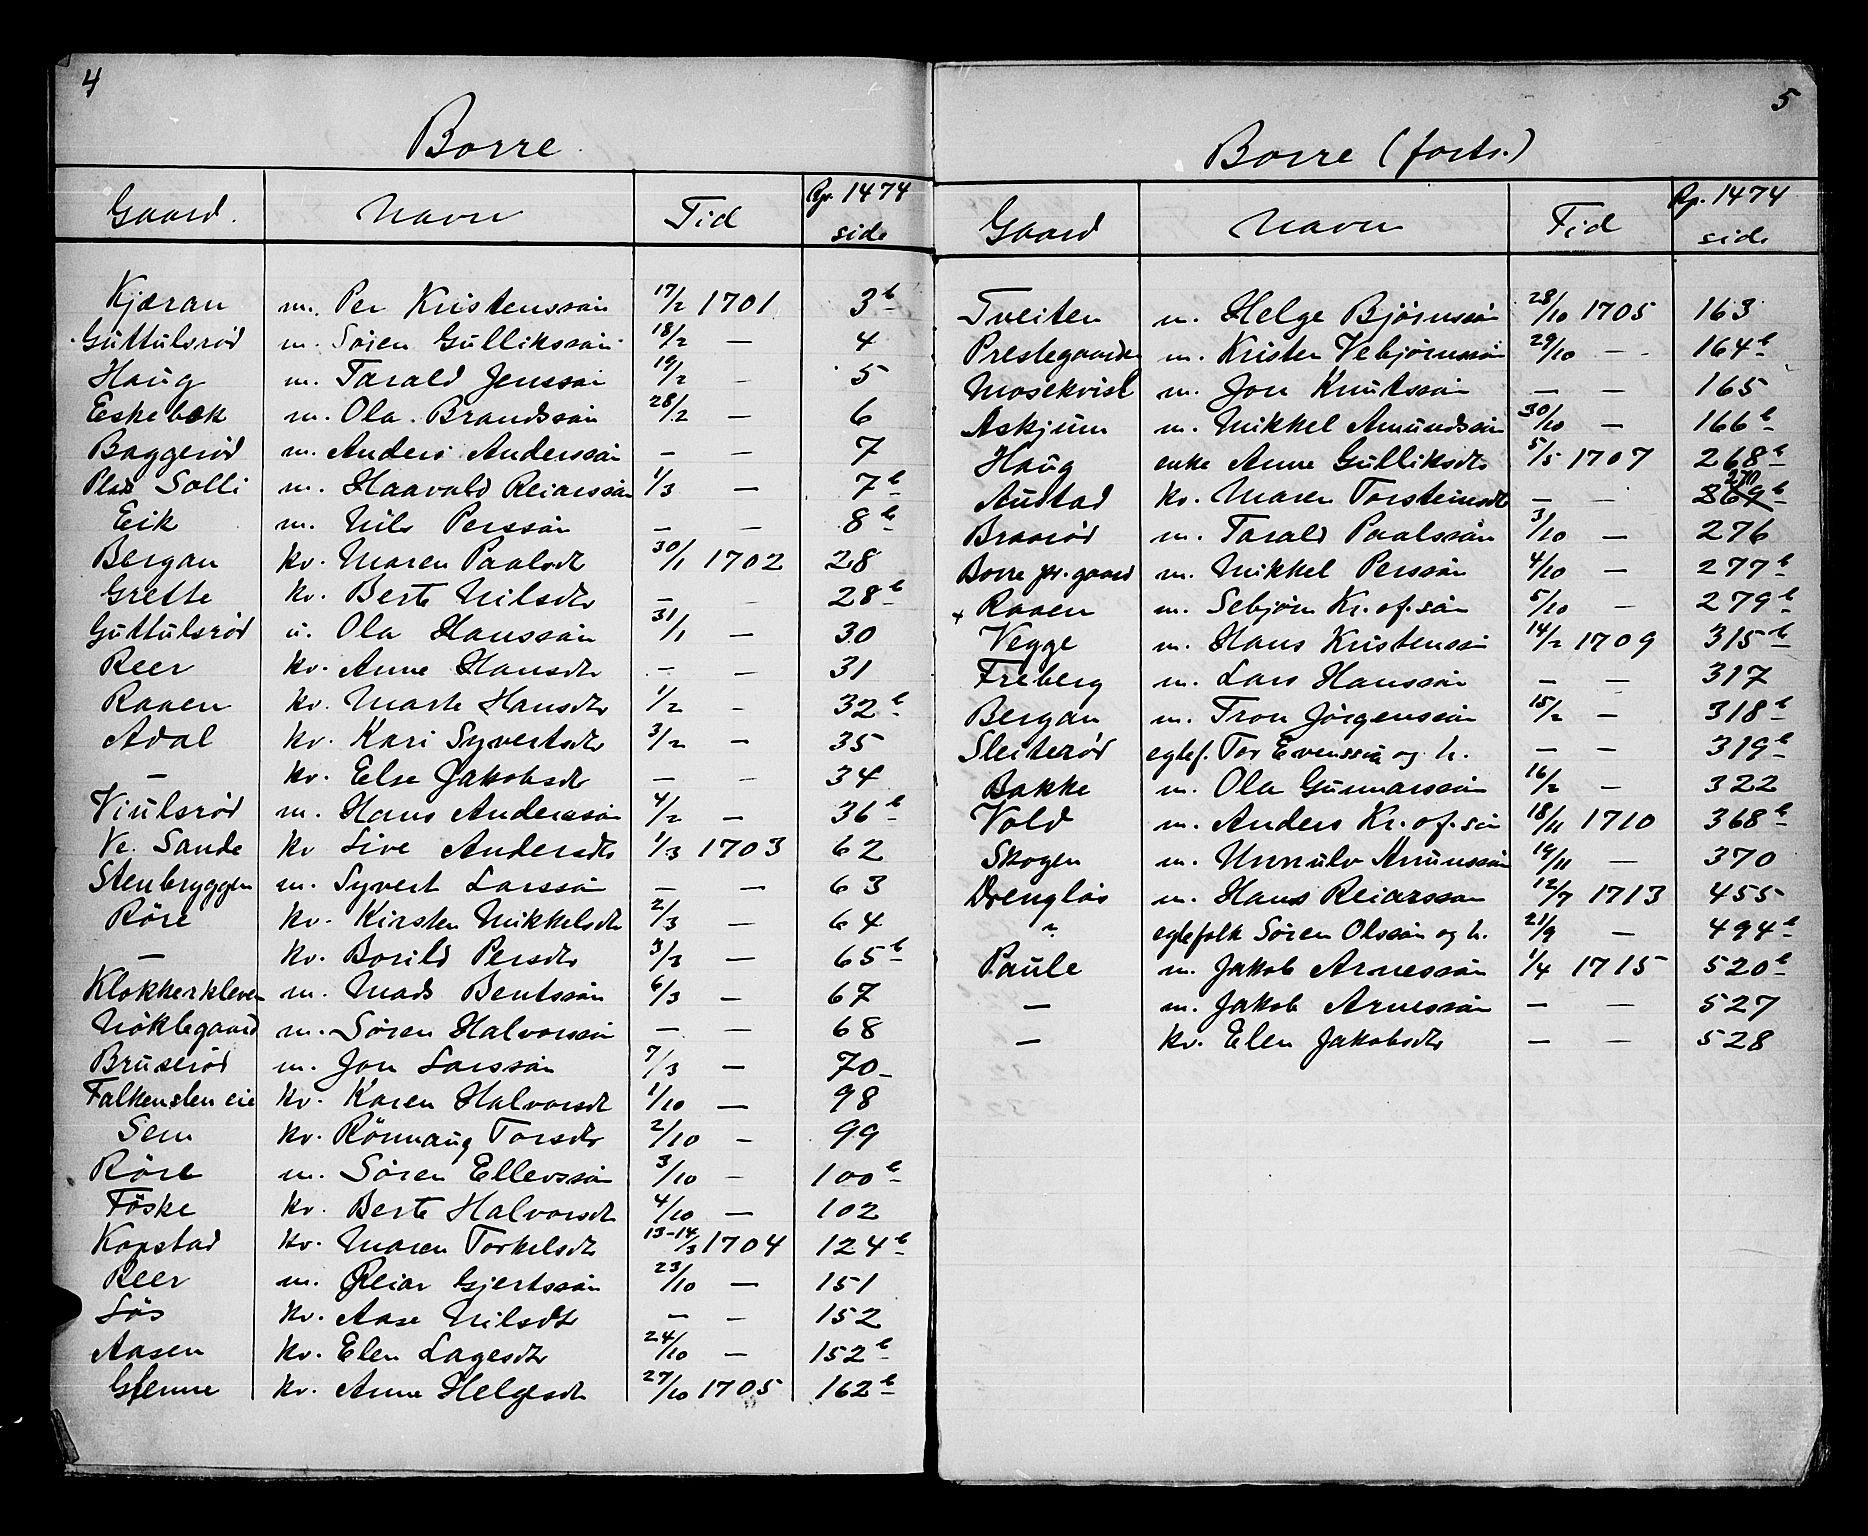 4
Borre
Gaard. Navn Tid Rp. 1474 side
Kjæran m. Per Kristenssøn 17/2 1701 3b
Guttulsrød m. Søren Gullikssøn 18/2 — 4
Haug m. Tarald Jenssøn 19/2 — 5
Eskebæk m. Ola Brandssøn 28/2 — 6
Baggerød m. Anders Anderssøn — — 7
Plads Solli m. Haavald Reiarssøn 1/3 — 7b
Eik m. Nils Perssøn — — 8b
Bergan kv. Maren Paalsdtr 30/1 1702 28
Grette kv. Berte Nilsdtr — — 28b
Guttulsrød u. Ola Hanssøn 31/1 — 30
Reer kv. Anne Hansdtr — — 31
Raaen kv. Marte Hansdtr 1/2 — 32b
Adal kv. Kari Syvertsdtr 3/2 — 35
— kv. Else Jakobsdtr — — 34
Viulsrød m. Hans Anderssøn 4/2 — 36b
Ve. Sande kv Live Andersdtr 1/3 1703 62
Stenbryggen m. Syvert Larssøn — — 63
Røre kv. Kirsten Mikkelsdtr 2/3 — 64
— kv. Borild Persdtr 3/3 — 65b
Klokkerkleven m. Mads Bentssøn 6/3 — 67
Nøklegaard m. Søren Halvorssøn — — 68
Bruserød m. Jon Larssøn 7/3 — 70
Falkensten eie kv. Karen Halvorsdtr 1/10 — 98
Sem kv. Rönnaug Torsdtr 2/10 — 99
Röre m. Søren Ellevssøn 3/10 — 100b
Föske kv. Berte Halvorsdtr 4/10 — 102
Kopstad kv. Maren Torkelsdtr 13-14/3 1704 124b
Reer m. Reiar Gjertssøn 23/10 — 151
Løs kv. Aase Nilsdtr — — 152
Aasen kv. Elen Lagesdtr 24/10 — 152b
Glenne kv. Anne Helgesdtr 27/10 1705 162b
5
Borre (forts.)
Gaard Navn Tid Rp. 1474 side
Tveiten m. Helge Bjørnssøn 28/10 1705 163
Prestegaarden m. Kristen Vebjørnssøn 29/10 — 164b
Mosekvist m. Jon Knutssøn — — 165
Askjum m. Mikkel Amundssøn 30/10 — 166b
Haug enke Anne Gulliksdtr 5/5 1707 268b
Austad kv. Maren Torsteinsdtr — — 869b 270
Braarød m. Tarald Paalssøn 3/10 — 276
Borre pr. gaard m. Mikkel Perssøn 4/10 — 277b
x Raaen m. Sebjørn Kr.of.søn 5/10 — 279b
Vegge m. Hans Kristenssøn 14/2 1709 315b
Freberg m. Lars Hanssøn — — 317
Bergan m. Tron Jörgenssøn 15/2 — 318b
Sleiterød egtef. Tor Evenssøn og h. — — 319b
Bakke m. Ola Gunnarssøn 16/2 — 322
Vold m. Anders Kr.of.søn 18/11 1710 368b
Skogen m. Unnulv Amunssøn 19/11 — 370
Drengløs m. Hans Reiarsson 12/7 1713 455
" egtefolk Søren Olssøn og h. 21/9 — 494b
Paule m. Jakob Arnessøn 1/4 1715 520b
— m. Jakob Arnessøn — — 527
— kv. Elen Jakobsdtr — — 528